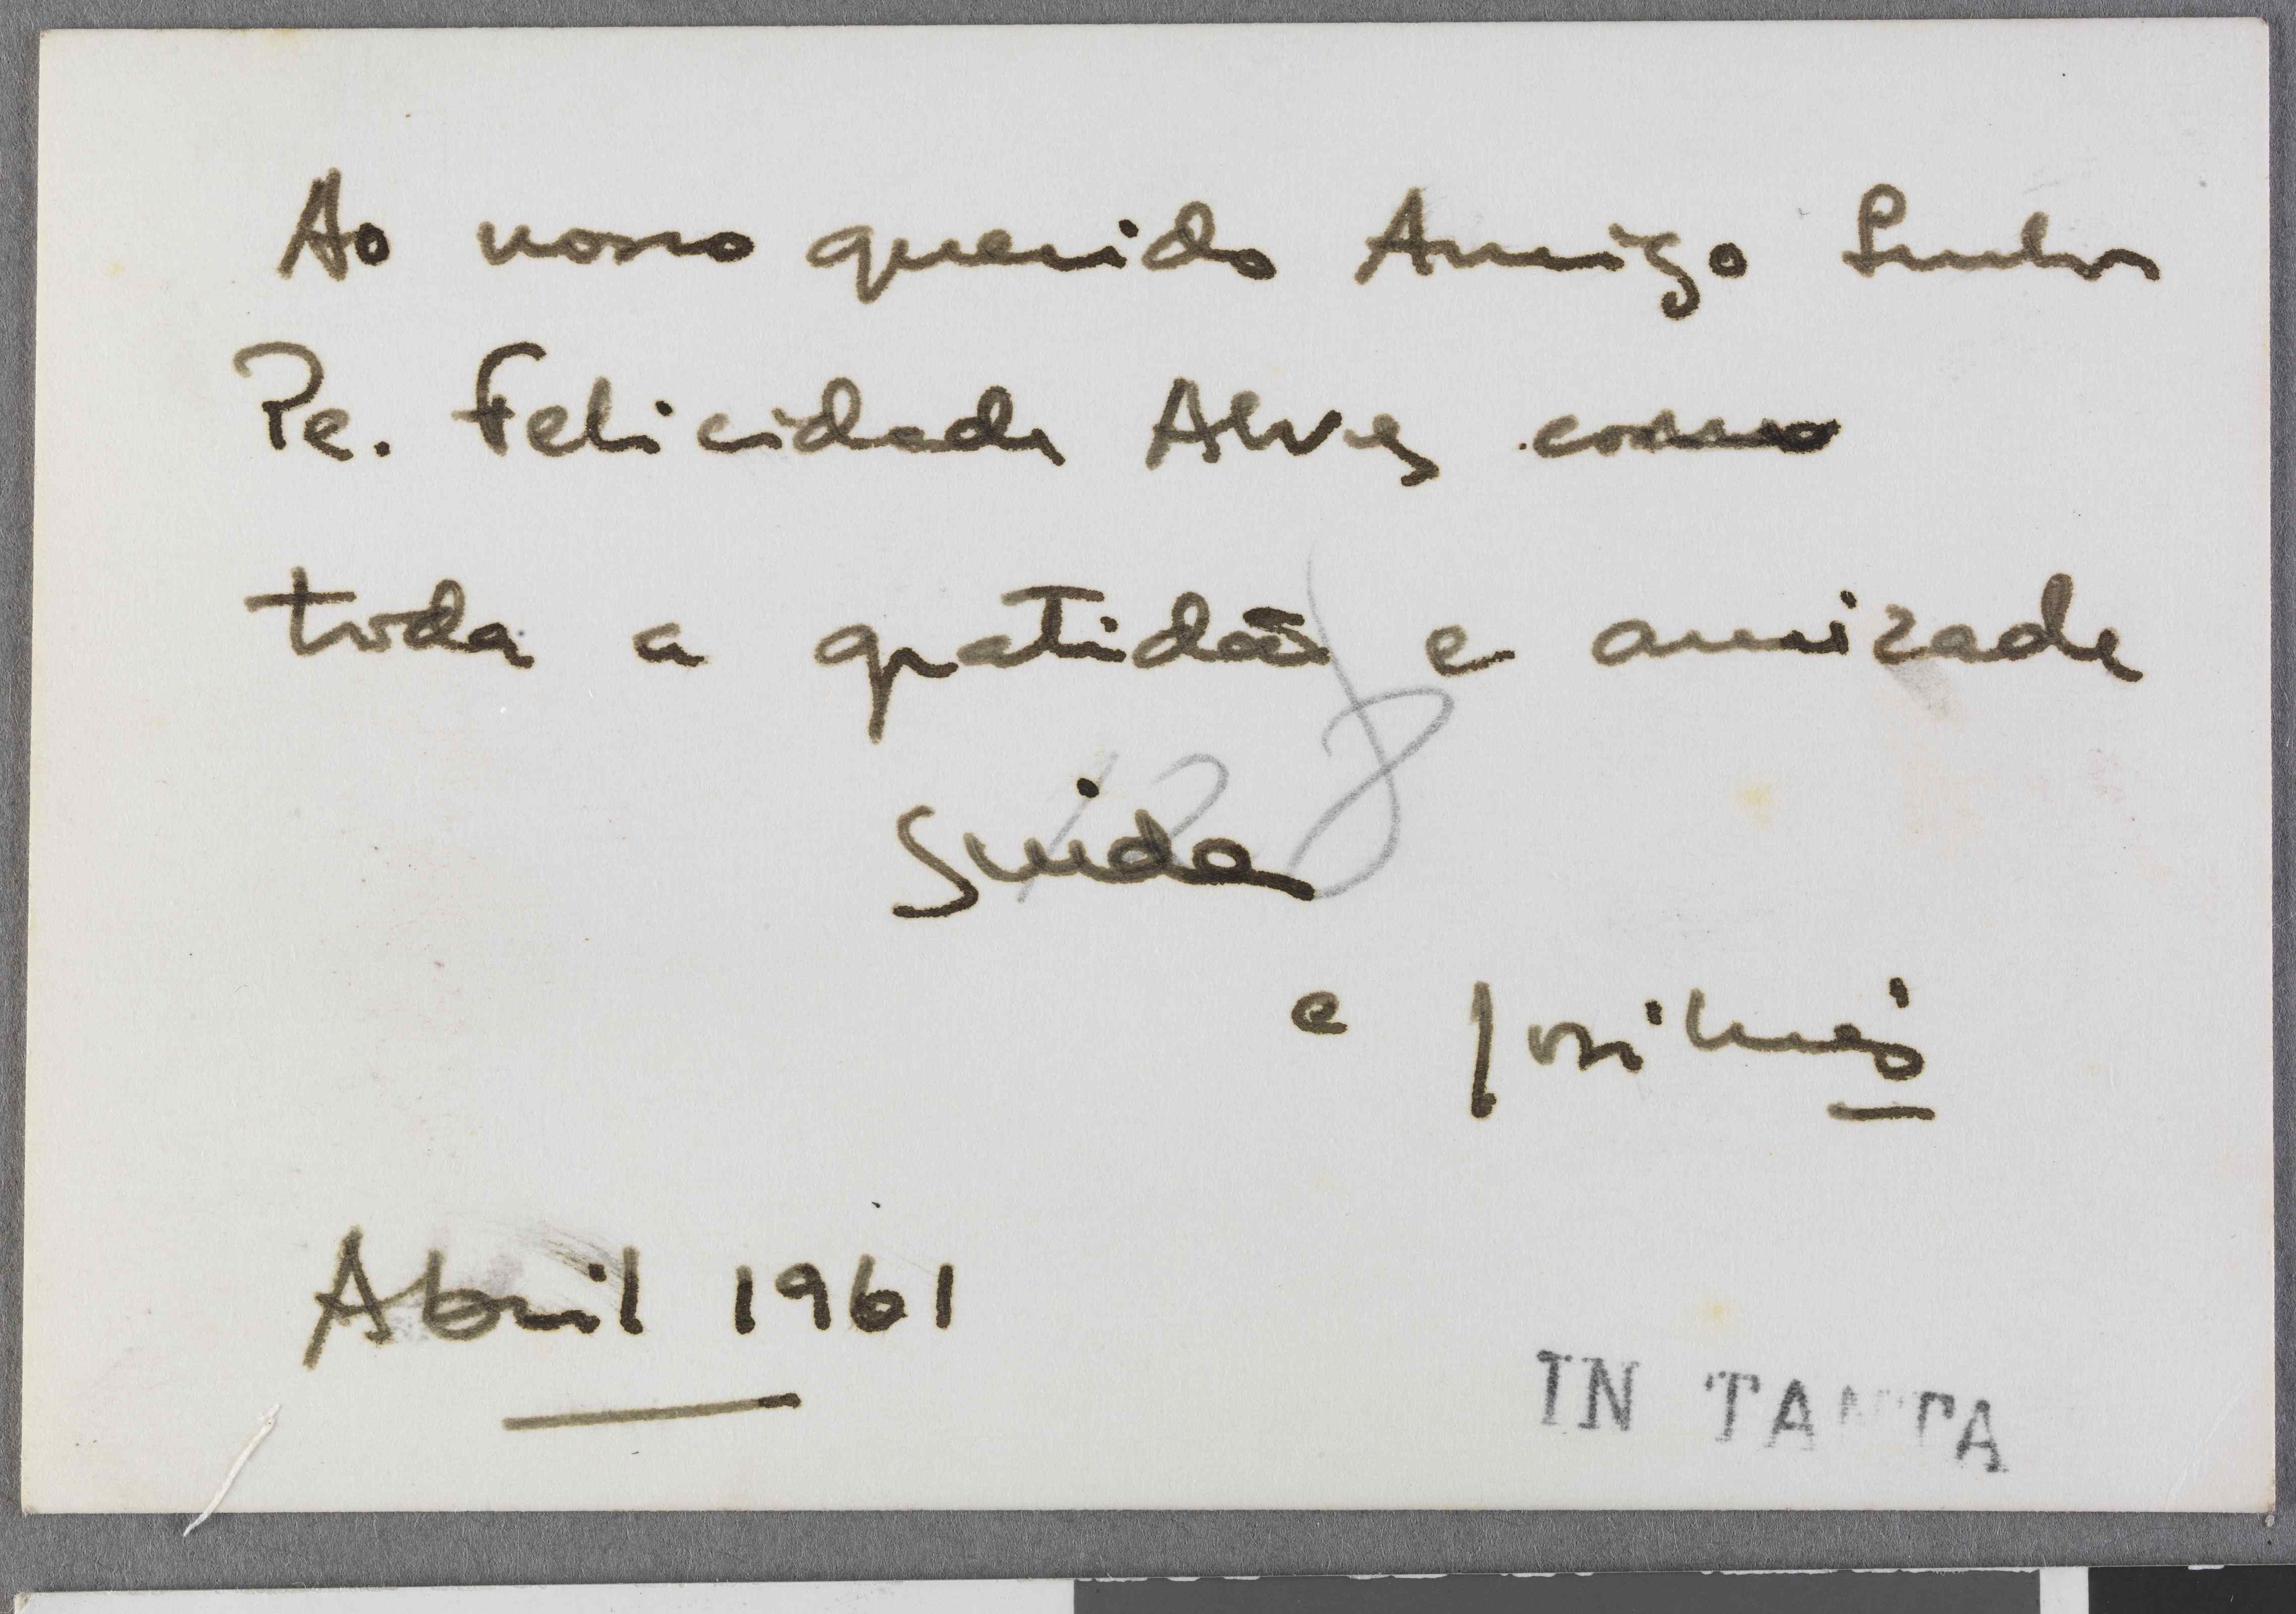 Ao nosso querido Amigo Senhor
Pe. Felicidade Alves com
toda a gratidão e amizade
Guida
e
Abril 1961
IN TANTA